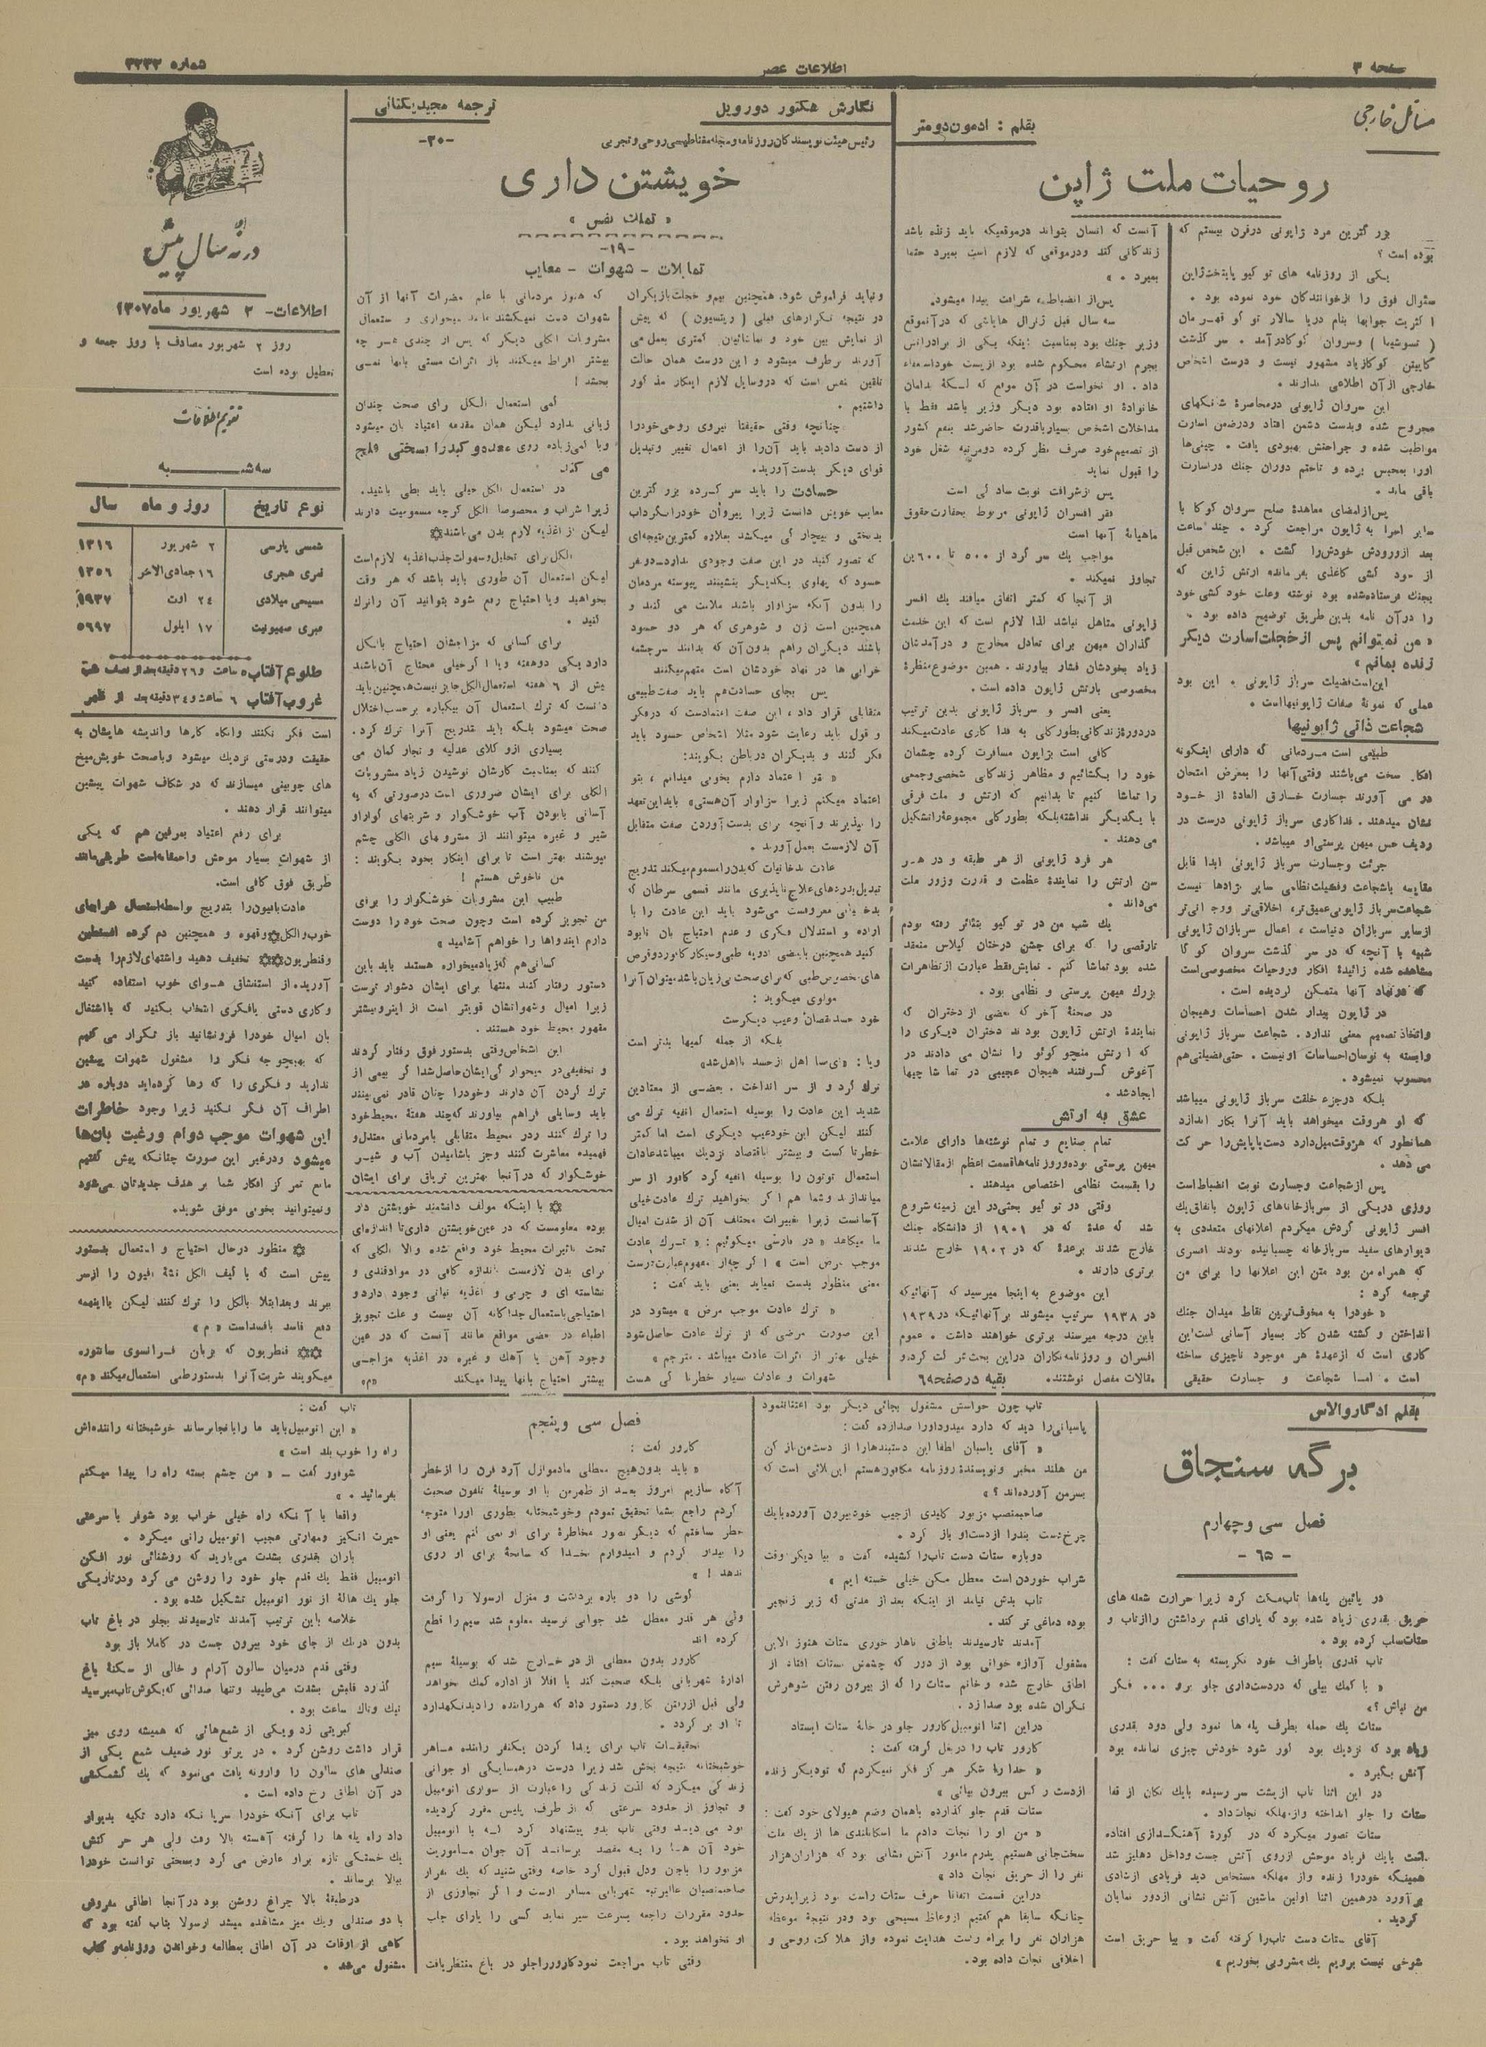 صفحه ۳
اطلاعات عصر
شماره ۳۲۳۳
مسائل خارجی
بقلم : ادمون دومتر
روحیات ملت ژاپن
بزرگترین مرد ژاپونی درقرن بیستم که
بوده است ؟
یکی از روزنامه های توکیو پایتخت ژاپن
سئوال فوق را ازخوانندگان خود نموده بود .
اکثریت جوابها بنام دریا سالار توگو قهرمان
( تسوشیما ) وسروان کوکا درآمد . سرگذشت
کاپیتن کوکا زیاد مشهور نیست و درست اشخاص
خارجی از آن اطلاعی ندارند .
این سروان ژاپونی درمحاصرهٔ شانگهای
مجروح شده وبدست دشمن افتاد ودرضمن اسارت
مواظبت شده و جراحتش بهبودی یافت . چینی‌ها
اورا بمحبس برده و تاختم دوران جنك دراسارت
باقی ماند .
پس ازامضای معاهدهٔ صلح سروان کوکا با
سایر اسرا به ژاپون مراجعت کرد . چند ساعت
بعد ازورودش خودش را کشت . این شخص قبل
از خود کشی کاغذی بفرمانده ارتش ژاپن که
بجنك فرستاده‌شده بود نوشته وعلت خود کشی خود
را درآن نامه بدین طریق توضیح داده بود .
« من نمیتوانم پس ازخجلت اسارت دیگر
زنده بمانم »
این است فضیلت سرباز ژاپونی . این بود
عملی که نمونهٔ صفات ژاپونیها است .
شجاعت ذاتی ژاپونیها
طبیعی است مردمانی که دارای اینگونه
افکار سخت می‌باشند وقتی آنها را بمعرض امتحان
در می آورند جسارت خارق العاده از خود
نشان میدهند . فداکاری سرباز ژاپونی درست در
ردیف حس میهن پرستی او میباشد .
جرئت وجسارت سرباز ژاپونی ابدا قابل
مقایسه باشجاعت وفضیلت نظامی سایر نژادها نیست
شجاعت سرباز ژاپونی عمیق تر، اخلاقی تر و وجدانی تر
ازسایر سربازان دنیاست ، اعمال سربازان ژاپونی
شبیه با آنچه که در سر گذشت سروان کوکا
مشاهده شد زائیدهٔ افکار وروحیات مخصوصی است
که درنهاد آنها متمکن گردیده است .
در ژاپون پیدار شدن احساسات وهیجان
واتخاذ تصمیم معنی ندارد . شجاعت سرباز ژاپونی
وابسته به نوسان احساسات او نیست . حتی فضیلتی هم
محسوب نمیشود .
بلکه درجزء خلقت سرباز ژاپونی میباشد
که او هروقت میخواهد باید آنرا بکار اندازد
همانطور که هروقت میل دارد دست یا پایش را حرکت
می دهد .
پس ازشجاعت وجسارت نوبت انضباط است
روزی دریکی از سربازخانه‌های ژاپون باتفاق یك
افسر ژاپونی گردش میکردم اعلانهای متعددی به
دیوارهای سفید سربازخانه چسبانیده بودند افسری
که همراه من بود متن این اعلانها را برای من
ترجمه کرد :
« خودرا به مخوف‌ترین نقاط میدان جنك
انداختن و کشته شدن کار بسیار آسانی است این
کاری است که ازعهدهٔ هر موجود ناچیزی ساخته
است . امـا شجاعت و جسارت حقیقی
آنست که انسان بتواند درموقعیکه باید زنده باشد
زندگانی کند ودرموقعی که لازم است بمیرد حتما
بمیرد . »
پس از انضباط ، شرافت پیدا میشود.
سه سال قبل ژنرال هایاشی که درآنموقع
وزیر جنك بود بمناسبت اینکه یکی از برادرانش
بجرم ارتشاء محکوم شده بود ازپست خوداستعفاء
داد . او نخواست در آن موقع که لکهٔ بدامان
خانوادهٔ او افتاده بود دیگر وزیر باشد فقط با
مداخلات اشخاص بسیار باقدرت حاضر شد بنفع کشور
از تصمیم خود صرف نظر کرده دومرتبه شغل خود
را قبول نماید
پس ازشرافت نوبت سادگی است
فقر افسران ژاپونی مربوط بحقارت حقوق
ماهیانهٔ آنها است
مواجب یك سر گرد از ۵۰۰ تا ۶۰۰ ین
تجاوز نمیکند .
از آنجا که کمتر اتفاق میافتد یك افسر
ژاپونی متاهل نباشد لذا لازم است که این خدمت
گذاران میهن برای تعادل مخارج و درآمدشان
زیاد بخودشان فشار بیاورند . همین موضوع منظرهٔ
مخصوصی بارتش ژاپون داده است .
یعنی افسر و سرباز ژاپونی بدین ترتیب
در دورهٔ زندگانی بطورکلی به فدا کاری عادت میکند
کافی است بژاپون مسافرت کرده چشمان
خود را بگشائیم و مظاهر زندگانی شخصی وجمعی
را تماشا کنیم تا بدانیم که ارتش و ملت فرقی
با یکدیگر نداشته بلکه بطورکلی مجموعهٔ راتشکیل
می دهند .
هر فرد ژاپونی از هر طبقه و در هر
سن ارتش را نمایندهٔ عظمت و قدرت وزور ملت
می‌داند .
یك شب من در توکیو بتئاتر رفته بودم
تارقصی را که برای جشن درختان گیلاس منعقد
شده بود تماشا کنم . نمایش فقط عبارت ازتظاهرات
بزرك میهن پرستی و نظامی بود .
در صحنهٔ آخر که بعضی از دختران که
نمایندهٔ ارتش ژاپون بودند دختران دیگری را
که ارتش منچو کوئو را نشان می دادند در
آغوش گرفتند هیجان عجیبی در تماشاچیها
ایجادشد .
عشق به ارتش
تمام صنایع و تمام نوشته‌ها دارای علامت
میهن پرستی بوده و روزنامه ها قسمت اعظم از مقالاتشان
را بقسمت نظامی اختصاص میدهند .
وقتی در توکیو بحثی در این زمینه شروع
شد که عدهٔ که در ۱۹۰۱ از دانشگاه جنك
خارج شدند برعدهٔ که در ۱۹۰۲ خارج شدند
برتری دارند .
این موضوع به اینجا میرسید که آنهائیکه
در ۱۹۳۸ سرتیپ میشوند برآنهائیکه در ۱۹۳۹
باین درجه میرسند برتری خواهند داشت . عموم
افسران و روزنامه‌نگاران دراین بحث شرکت کرده و
مقالات مفصل نوشتند. بقیه درصفحه ۶
نگارش هکتور دورویل
ترجمه مجید یکتائی
رئیس هیئت نویسندگان روزنامه و مجله مقناطیسی روحی و تجربی
-۳۰-
خویشتن داری
« تملك نفس »
-۱۹-
تمایلات - شهوات - معایب
ونباید فراموش شود. همچنین بیم و خجلت بازیگران
در نتیجه تکرارهای قبلی ( رپتسیون ) که پیش
از نمایش بین خود و تماشائیان کمتری بعمل می
آورند برطرف میشود و این درست همان حالت
تلقین نفس است که دروسایل لازم اینکار مذکور
داشتیم .
چنانچه وقتی حقیقتا نیروی روحی خود را
از دست دادید باید آن‌را از اعمال تغییر وتبدیل
قوای دیگر بدست آورید.
حسادت را باید سر کرده بزرگترین
معایب خویش دانست زیرا پیروان خود را بگرداب
بدبختی و بیچارگی میکشد بعلاوه کمترین نتیجه‌ای
که تصور کنید در این صفت وجودی ندارد. دو نفر
حسود که پهلوی یکدیگر بنشینند پیوسته مردمان
را بدون آنکه سزاوار باشند ملامت می کنند و
همچنین است زن و شوهری که هر دو حسود
باشند دیگران راهم بدون آن که بدانند سرچشمه
خرابی ها در نهاد خودشان است متهم میکنند
پس بجای حسادت هم باید صفت طبیعی
متقابلی قرار داد ، این صفت اعتماد است که درفکر
و قول باید رعایت شود مثلا اشخاص حسود باید
فکر کنند و بدیگران درباطن بگویند :
« بتو اعتماد دارم بخوبی میدانم ، بتو
اعتماد میکنم زیرا سزاوار آن هستی » باید این تعهد
را بپذیرند و آنچه برای بدست آوردن صفت متقابل
آن لازمست بعمل آورند .
عادت بدخانیات که بدن را مسموم میکند بتدریج
تبدیل بدردهای علاج ناپذیری مانند قسمی سرطان که
بدخانیاتی معروفست می‌شود باید این عادت را با
اراده و استدلال فکری و عدم احتیاج بآن نابود
کنید همچنین با بعضی ادویه طبی وسیگار کامفر و قرص
های مخصوص طبی که برای صحت بی زیان باشد میتوان آنرا
مولوی میگوید :
خود حسد نقصان و عیب دیگرست
بلکه از جمله کمیها بدتر است
ویا : « ای بسا اهل از حسد نااهل شد »
ترك کرد و از سر انداخت . بعضی از معتادین
شدید این عادت را بوسیله استعمال انفیه ترك می
کنند لیکن این خود عیب دیگری است اما کمتر
خطرناکست و بیشتر باقتصاد نزدیك میباشد عادات
استعمال توتون را بوسیله انفیه گرد کافور از سر
میاندازند و شما هم اگر بخواهید ترك عادت خیلی
آسانست زیرا تغییرات مختلف آن از شدت امیال
ما میکاهد « در فارسی میگوئیم : « ترك عادت
موجب مرض است » اگرچه از مفهوم عبارت درست
معنی منظور بدست نمیاید یعنی باید گفت :
« ترك عادت موجب مرض » میشود در
این صورت مرضی که از ترك عادت حاصل شود
خیلی بهتر از اثرات عادت میباشد . مترجم »
شهوات و عادات بسیار خطرناکی هست
که هنوز مردمانی با علم مضرات آنها از آن
شهوات دست نمیکشند مانند میخواری و استعمال
مشروبات الکلی دیگر که پس از چندی هر چه
بیشتر افراط میکنند باز اثرات مستی بآنها نمی
بخشد !
کمی استعمال الکل برای صحت چندان
زیانی ندارد لیکن همان مقدمه اعتیاد بآن میشود
وبا کمی زیاده روی معده و کبد را بسختی فلج
می کند
در استعمال الکل خیلی باید بطی باشید.
زیرا شراب و مخصوصا الکل گرچه مسمومیت دارند
لیکن از اغذیه لازم بدن می‌باشند✡
الکل برای تحلیل وسهولت جذب اغذیه لازم است
لیکن استعمال آن طوری باید باشد که هر وقت
بخواهید ویا احتیاج رفع شود بتوانید آن را ترك
کنید .
برای کسانی که مزاجشان احتیاج بالکل
دارد یکی دوهفته ویا اگرخیلی محتاج آن باشند
بیش از ۶ هفته استعمال الکل جایز نیست همچنین باید
دانست که ترك استعمال آن بیکباره برحسب اختلال
صحت میشود بلکه باید بتدریج آنرا ترك کرد .
بسیاری ازو کلای عدلیه و تجار گمان می
کنند که بمناسبت کارشان نوشیدن زیاد مشروبات
الکلی برای ایشان ضروری است درصورتی که به
آسانی بابودن آب خوشگوار و شربتهای گوارا و
شیر و غیره میتوانند از مشروبهای الکلی چشم
بپوشند بهتر است تا برای اینکار بخود بگویند :
من ناخوش هستم !
طبیب این مشروبات خوشگوار را برای
من تجویز کرده است وچون صحت خود را دوست
دارم ایندواها را خواهم آشامید »
کسانی هم که زیاد میخواره هستند باید باین
دستور رفتار کنند منتها برای ایشان دشوار ترست
زیرا امیال وشهواتشان قویتر است از اینرو بیشتر
مقهور محیط خود هستند .
این اشخاص وقتی بدستور فوق رفتار کردند
و تخفیفی در میخوارگی ایشان حاصل شد اگر بیمی از
ترك کردن آن دارند وخودرا چنان قادر نمی بینند
باید وسایلی فراهم بیاورند که چند هفتهٔ محیط خود
را ترك کنند ودر محیط متقابلی بامردمانی معتدل و
فهمیده معاشرت کنند وجز باشامیدن آب و شیر
خوشگوار که درآنجا بهترین تریاقی برای ایشان
✡ با اینکه مولف دانشمند خویشتن دار
بوده معلومست که در عین خویشتن داری تا اندازه‌ای
تحت تاثیرات محیط خود واقع شده والا الکلی که
برای بدن لازمست باندازه کافی در موادقندی و
نشاسته ای و چربی و اغذیه نباتی وجود دارد و
احتیاجی باستعمال جداگانه آن نیست و علت تجویز
اطباء در بعضی مواقع مانند آنست که در عین
وجود آهن یا آهك و غیره در اغذیه مزاجی
بیشتر احتیاج بآنها پیدا میکند «م»
درنه سال پیش
اطلاعات- ۲ شهریور ماه ۱۳۰۷
روز ۲ شهریور مصادف با روز جمعه و
تعطیل بوده است
تقویم اطلاعات
سه شنبه
نوع تاریخ روز و ماه سال
شمسی پارسی ۲ شهریور ۱۳۱۶
قمری هجری ۱۶ جمادی الاخر ۱۳۵۶
مسیحی میلادی ۲۴ اوت ۱۹۳۷
عبری صهیونیت ۱۷ ایلول ۵۶۹۷
طلوع آفتاب ۵ ساعت و ۲۶ دقیقه بعد از نصف شب
غروب آفتاب ۶ ساعت و ۳۴ دقیقه بعد از ظهر
است فکر نکنند وآنگاه کارها واندیشه هایشان به
حقیقت ودرستی نزدیك میشود وباصحت خویش میخ
های چوبینی میسازند که در شکاف شهوات پیشین
میتوانند قرار دهند .
برای رفع اعتیاد بمرفین هم که یکی
از شهوات بسیار موحش واحمقانه است طریقی مانند
طریق فوق کافی است.
عادت بافیون را بتدریج بواسطه استعمال شرابهای
خوب والکل✡وقهوه و همچنین دم کرده افسنطین
وقنطریون✡✡ تخفیف دهید واشتهای لازم را بدست
آورید. از استنشاق هوای خوب استفاده کنید
وکاری دستی یافکری انتخاب بکنید که با اشتغال
بآن امیال خودرا فرونشانید باز تکرار می کنیم
که بهیچوجه فکر را مشغول شهوات پیشین
ندارید و فکری را که رها کرده‌اید دوباره در
اطراف آن فکر نکنید زیرا وجود خاطرات
این شهوات موجب دوام ورغبت بآن‌ها
میشود ودرغیر این صورت چنانکه پیش گفتیم
مانع تمرکز افکار شما بر هدف جدیدتان می‌شود
ونمیتوانید بخوبی موفق شوید.
✡ منظور درحال احتیاج و استعمال بدستور
پیش است که با کیف الکل نشئهٔ افیون را ازسر
ببرند و بعدا بتلا بالکل را ترك کنند لیکن با اینهمه
دفع فاسد بافسداست « م »
✡✡ قنطریون که بزبان فرانسوی سانتوره
میگویند شربت آنرا بدستورطبی استعمال میکند «م»
بقلم ادگار والاس
برگه سنجاق
فصل سی وچهارم
- ۶۵ -
در پائین پله‌ها تاب مکث کرد زیرا حرارت شعله های
حریق بقدری زیاد شده بود که یارای قدم برداشتن را از تاب و
ستات سلب کرده بود .
تاب قدری باطراف خود نگریسته به ستات گفت :
« با کمك بیلی که دردست داری جلو برو ... فکر
من نباش ؟ »
ستات یك حمله بطرف پله ها نمود ولی دود بقدری
زیاد بود که نزدیك بود کور شود خودش چیزی نمانده بود
آتش بگیرد .
در این اثنا تاب ازپشت سر رسیده بایك تکان از قفا
ستات را جلو انداخته و از مهلکه نجات داد .
ستات تصور میکرد که در کورهٔ آهنگدازی افتاده
است بایك فریاد موحش ازروی آتش جست وداخل دهلیز شد
همینکه خودرا زنده واز مهلکه مستخلص دید فریادی ازشادی
برآورد درهمین اثنا اولین ماشین آتش نشانی ازدور نمایان
گردید .
آقای ستات دست تاب را گرفته گفت « بیا حریق است
شوخی نیست برویم یك مشروبی بخوریم »
تاب چون حواسش مشغول بجائی دیگر بود اعتنا ننمود
پاسبانی را دید که دارد میدود اورا صدا زده گفت :
« آقای پاسبان لطفا این دستبندها را از دست من باز کن
من هلند مخبر ونویسندهٔ روزنامه مگافون هستم این بلائی است که
بسر من آورده‌اند ؟ »
صاحبمنصب مزبور کلیدی ازجیب خود بیرون آورده بایك
چرخ دست بند را از دست او باز کرد .
دوباره ستات دست تاب را کشیده گفت « بیا دیگر وقت
شراب خوردن است معطل مکن خیلی خسته ایم »
تاب بدش نیامد از اینکه بعد از مدتی که زیر زنجیر
بوده دماغی تر کند .
آمدند تارسیدند باطاق ناهار خوری ستات هنوز الاین
مشغول آوازه خوانی بود از دور که چشمش بستات افتاد از
اطاق خارج شده و خانم ستات را که از بیرون رفتن شوهرش
نگران شده بود صدا زد .
در این اثنا اتومبیل کارور جلو در خانهٔ ستات ایستاد
کارور تاب را در بغل گرفته گفت :
« خدا را شکر هرگز فکر نمیکردم که تو دیگر زنده
از دست رکس بیرون بیائی »
ستات قدم جلو گذارده باهمان وضع هیولای خود گفت :
« من او را نجات دادم ما اسکاتلندی ها از یك ملت
سخت جانی هستیم پدرم مامور آتش نشانی بود که هزاران هزار
نفر را از حریق نجات داد »
دراین قسمت اتفاقا حرف ستات راست بود زیرا پدرش
چنانکه سابقا هم گفتیم ازوعاظ مسیحی بود ودر نتیجهٔ موعظه
هزاران نفر را براه راست هدایت نموده واز هلاکت روحی و
اخلاقی نجات داده بود.
فصل سی و پنجم
کارور گفت :
« باید بدون هیچ معطلی مادموازل آرد فرن را ازخطر
آگاه سازیم امروز بعد از ظهر من با او بوسیلهٔ تلفون صحبت
کردم راجع بشما تحقیق نمودم وخوشبختانه بطوری اورا متوجه
خطر ساختم که دیگر تصور مخاطرهٔ برای او نمی کنم یعنی او
را بیدار کردم و امیدوارم بخدا که سانحهٔ برای او روی
ندهد ! »
گوشی را دو باره برداشت و منزل ارسولا را گرفت
ولی هر قدر معطل شد جوابی نرسید معلوم شد سیم را قطع
کرده اند
کارور بدون معطلی از در خارج شد که بوسیلهٔ سیم
ادارهٔ شهربانی بلکه صحبت کند یا اقلا از اداره کمك بخواهد
ولی قبل از رفتن کارور دستور داد که هر راننده را دید نگهدارد
تا او بر گردد .
تحقیقات تاب برای پیدا کردن یکنفر راننده ماهر
خوشبختانه نتیجه بخش شد زیرا درست درهمسایگی او جوانی
زندگی میکرد که لذت زندگی را عبارت از سواری اتومبیل
و تجاوز از حدود سرعتی که از طرف پلیس مقرر گردیده
بود می دید وقتی تاب بدو پیشنهاد کرد که با اتومبیل
خود آن ها را به مقصد برساند آن جوان ماموریت
مزبور را بجان ودل قبول کرد خاصه وقتی شنید که یك نفر از
صاحبمنصبان عالیرتبه شهربانی مسافر اوست و اگر تجاوزی از
حدود مقررات راجعه بسرعت سیر نماید کسی را یارای جلب
او نخواهد بود .
وقتی تاب مراجعت نمود کارور را جلو در باغ منتظر یافت
تاب گفت :
« این اتومبیل باید ما را بآنجا برساند خوشبختانه راننده‌اش
راه را خوب بلد است »
شوفور گفت - « من چشم بسته راه را پیدا میکنم
بفرمائید . »
واقعا با آنکه راه خیلی خراب بود شوفر با سرعتی
حیرت انگیز و مهارتی عجیب اتومبیل رانی میکرد .
باران بقدری بشدت می‌بارید که روشنائی نور افکن
اتومبیل فقط یك قدم جلو خود را روشن می کرد ودرتاریکی
جلو یك هالهٔ از نور اتومبیل تشکیل شده بود .
خلاصه باین ترتیب آمدند تا رسیدند بجلو در باغ تاب
بدون درنك از جای خود بیرون جست در کاملا باز بود
وقتی قدم درمیان سالون آرام و خالی از سکنهٔ باغ
گذرد قلبش بشدت می‌طپید وتنها صدائی که بگوش تاب میرسید
تیك و تاك ساعت بود .
کبریتی زد ویکی از شمع‌هائی که همیشه روی میز
قرار داشت روشن کرد . در پرتو نور ضعیف شمع یکی از
صندلی های سالون را وارونه یافت می‌نمود که یك کشمکشی
در آن اطاق رخ داده است .
تاب برای آنکه خودرا سرپا نگه دارد تکیه بدیوار
داد راه پله ها را گرفته آهسته بالا رفت ولی هر حرکتش
یك خستگی تازه براو عارض می کرد وبسختی توانست خودرا
ببالا برساند .
درطبقهٔ بالا چراغ روشن بود درآنجا اطاقی مفروش
با دو صندلی ویك میز مشاهده میشد ارسولا بتاب گفته بود که
گاهی از اوقات در آن اطاق بمطالعه وخواندن روزنامه و کتاب
مشغول می‌شد .